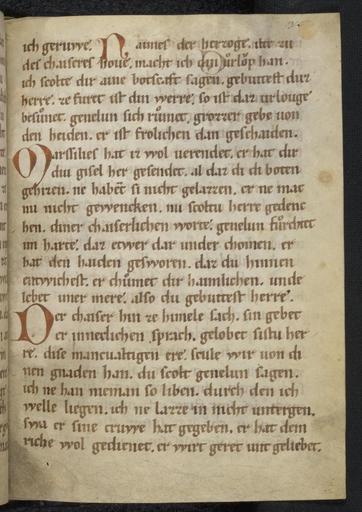 ich geruwe. Naimes der herzoge. ilte zu
des chaiseres houe. macht ich din urlop han.
ich scolte dir aine botscaft sagen. gebuttest duz
herre. ze furet ist din werre. so ist daz urlouge
besunet. genelun sich rumet. grozzer gebe uon
den heiden. er ist frolichen dan geschaiden.
Marssilies hat iz wol uerendet. er hat dir
diu gisel her gesendet. al daz di di boten
gehizen. ne habet si nicht gelazzen. er ne mac
nu nicht gewencken. nu scoltu herre gedenc
hen. diner chaiserlichen worte. genelun furchtet
im harte. daz etwer dar under chomen. er
hat den haiden gesworen. daz du hinnen
entwichest. er chumet dir haimlichen. unde
lebet imer mere. also du gebuttest herre.
Der chaiser hin ze himele sach. sin gebet
er innechlichen sprach. gelobet sistu her
re. dise maneualtigen ere. scule wir uon di
nen gnaden han. du scolt genelun sagen.
ich ne han nieman so liben. durch den ich
welle liegen. ich ne lazze in nicht untergen.
swa er sine truwe hat gegeben. er hat dem
riche wol gedienet. er wirt geret unt geliebet.